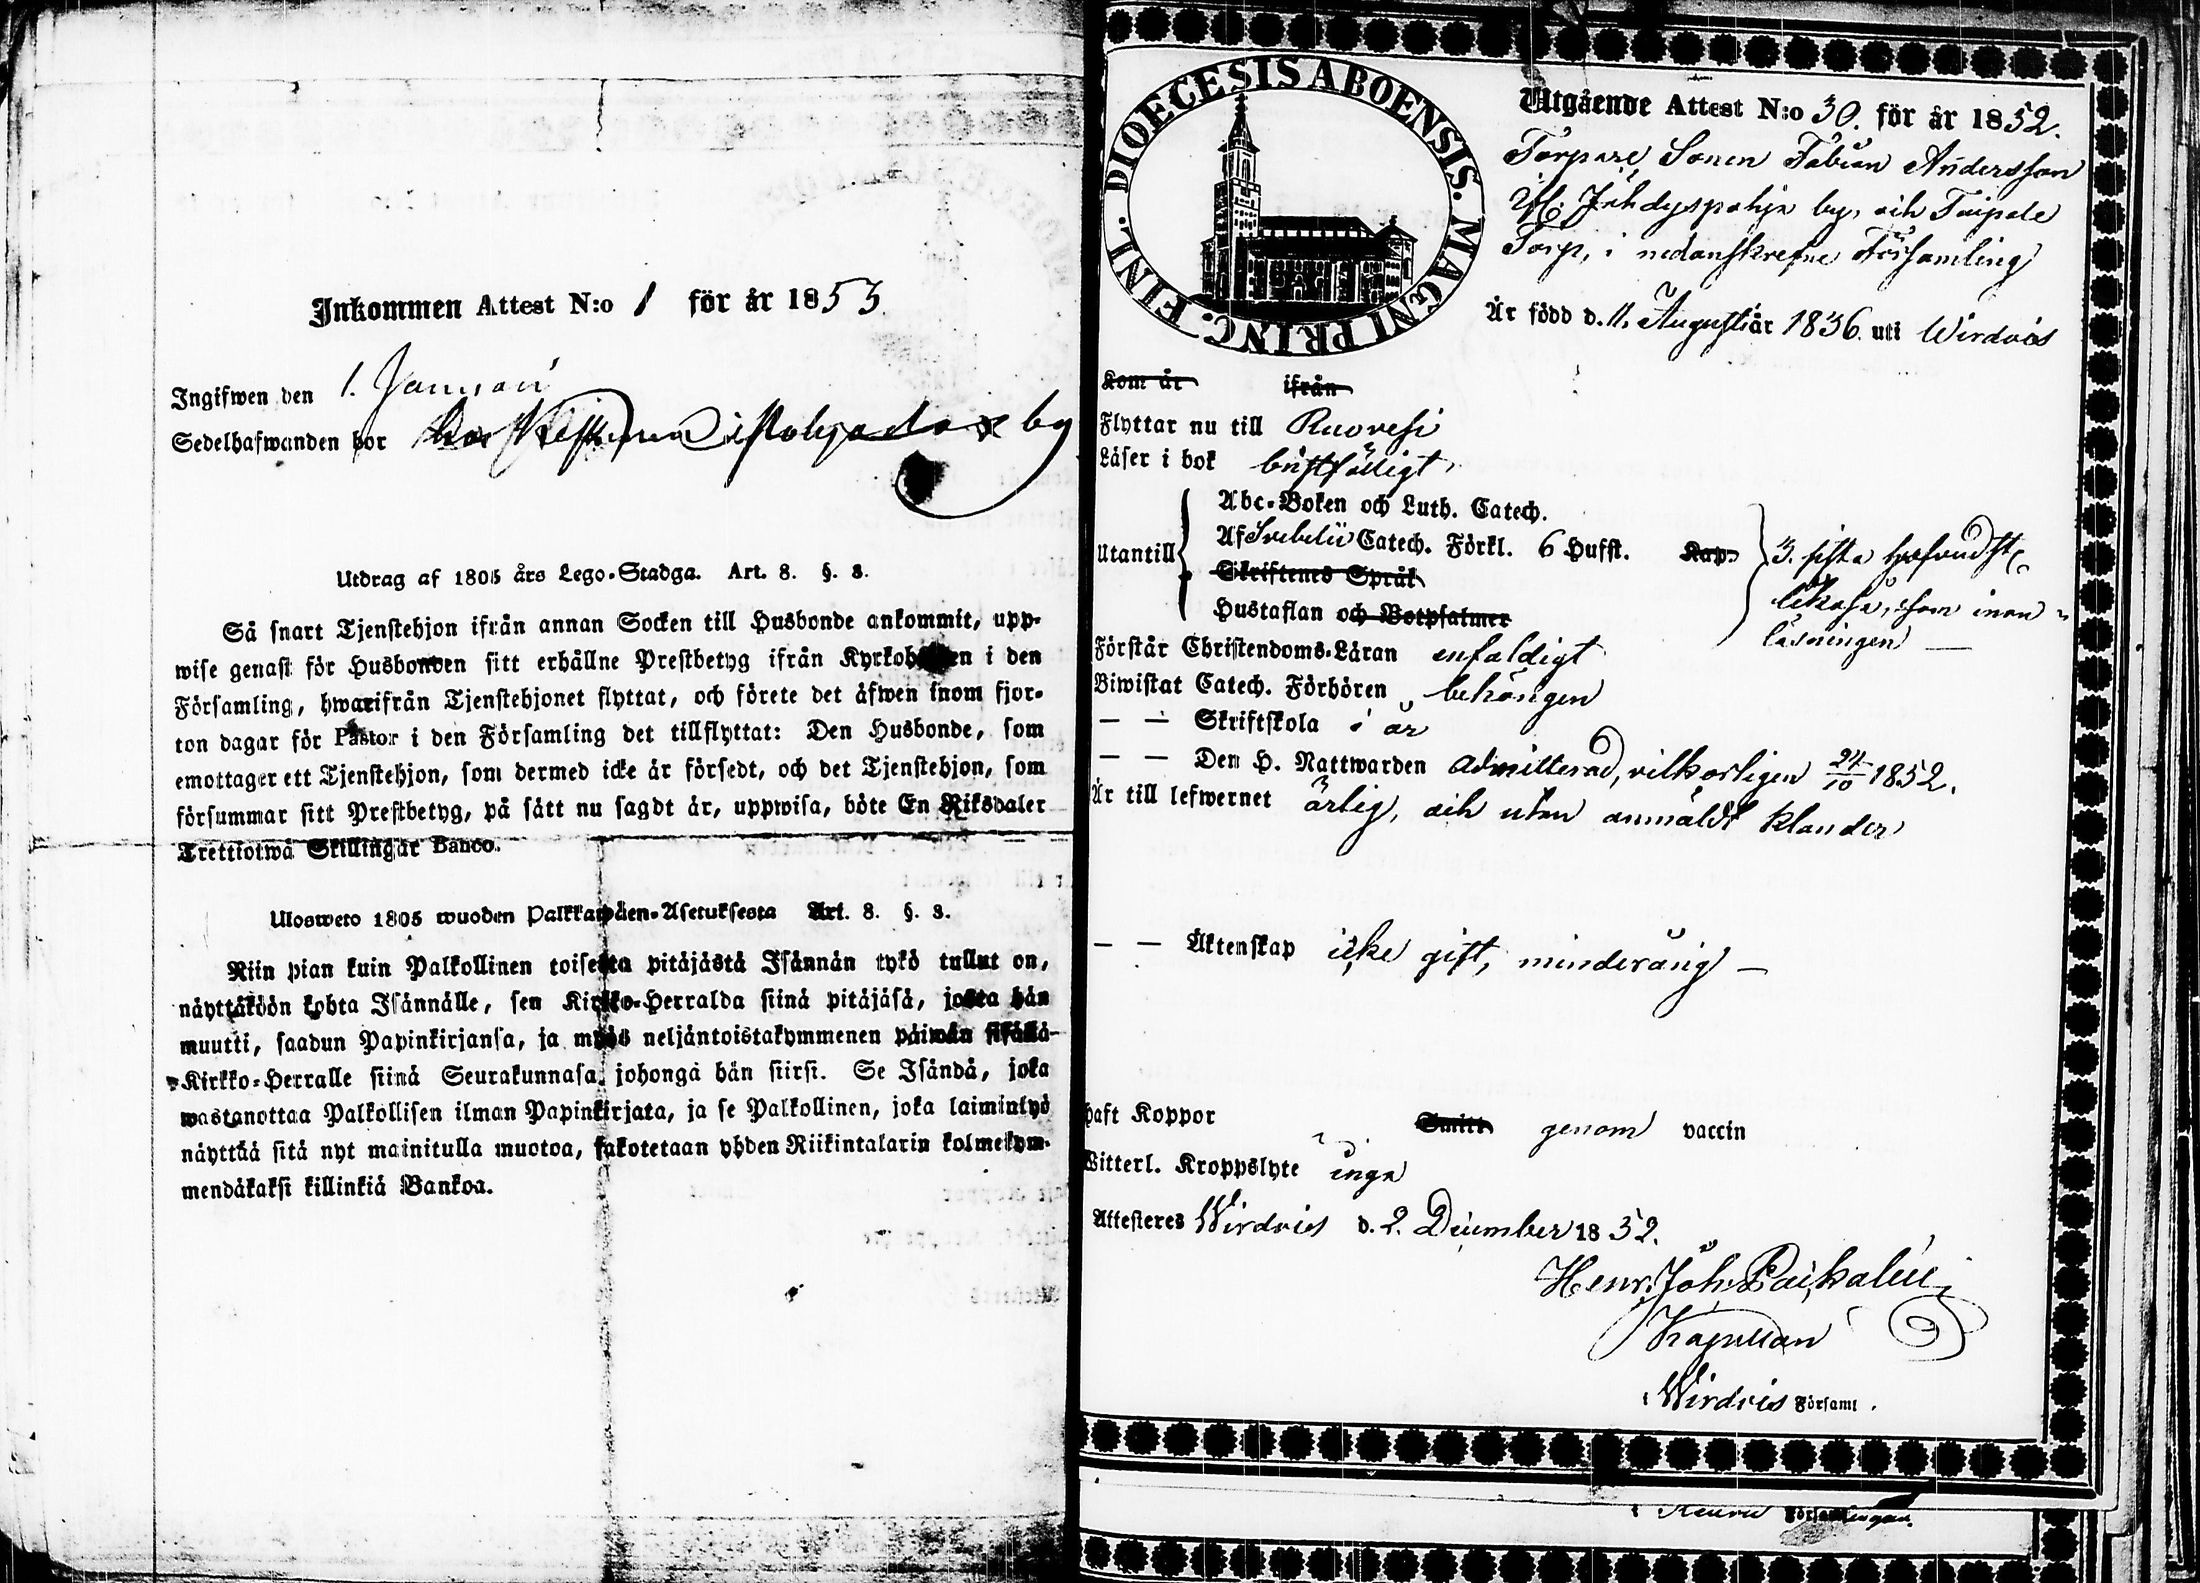 Inkommen Attest N:o 1 för år 1853.
Ingifwen den 1. Januari
Sedelhafwanden bor hos i Pohja by
Utdrag af 1805 års Lego-Stadga. Art. 8. §. 3.
Så snart Tjenstehjon ifrån annan Socken till Husbonde ankommit, upp-
wise genast för Husbonden sitt erhållne Prestbetyg ifrån Kyrkoherden i den
Församling, hwarifrån Tjenstehjonet flyttat, och förete det äfwen inom fjor-
ton dagar för Pastor i den Församling det tillflyttat: Den Husbonde, som
emottager ett Tjenstehjon, som dermed icke är försedt, och det Tjenstehjon, som
försummar sitt Prestbetyg, på sätt nu sagdt är, uppwisa, böte En Riksdaler
Trettiotwå Skillingar Banco.
Ulosweto 1805 wuoden Palkkawäen-Asetuksesta Art. 8. §. 3.
Niin pian kuin Palkollinen toisesta pitäjästä Isännän tykö tullut on,
näyttäköön kohta Isännälle, sen Kirkko-Herralda siinä pitäjäsä, josta hän
muutti, saadun Papinkirjansa, ja myös neljäntoistakymmenen päiwän sisällä
Kirkko-Herralle siinä Seurakunnasa, johonga hän siirsi. Se Isändä, joka
wastanottaa Palkollisen ilman Papinkirjata, ja se Palkollinen, joka laiminlyö
näyttää sitä nyt mainitulla muotoa, sakotetaan yhden Riikintalarin kolmekym-
mendäkaksi killinkiä Bankoa.
DIOECESIS ABOENSIS. MAGNI PRINC. FINL.
Utgående Attest N:o 30. för år 1852.
Torpare Sonen Fabian Andersson
ifr. Jähdyspohja by, och Taipale
Torp, i nedanskrefne Församling
Är född d. 11. Augusti år 1836. uti Wirdois
Kom år ifrån
Flyttar nu till Ruovesi
Läser i bok bristfälligt
Utantill
Abc-Boken och Luth. Catech.
Af Svebelii Catech. Förkl. 6 Hufst. Kap.
Skriftenes Språk
Hustaflan och Botpsalmer
3. sista hufvudst.
likaså, som innan-
läsningen
Förstår Christendoms-Läran enfaldigt
Biwistat Catech. Förhören behörigen
— — Skriftskola i år
— — Den H. Nattwarden admitterad, vilkorligen 24/10 1852.
Är till lefwernet ärlig, och utan anmäldt klander
— — Äktenskap icke gift, minderårig —
haft Koppor Smitt genom vaccin
Witterl. Kroppslyte inga
Attesteres Wirdois d. 2. December 1852.
Henr. Joh. Paikalin
Kapellan
i Wirdois Församl.
i Keuru Församlingen.